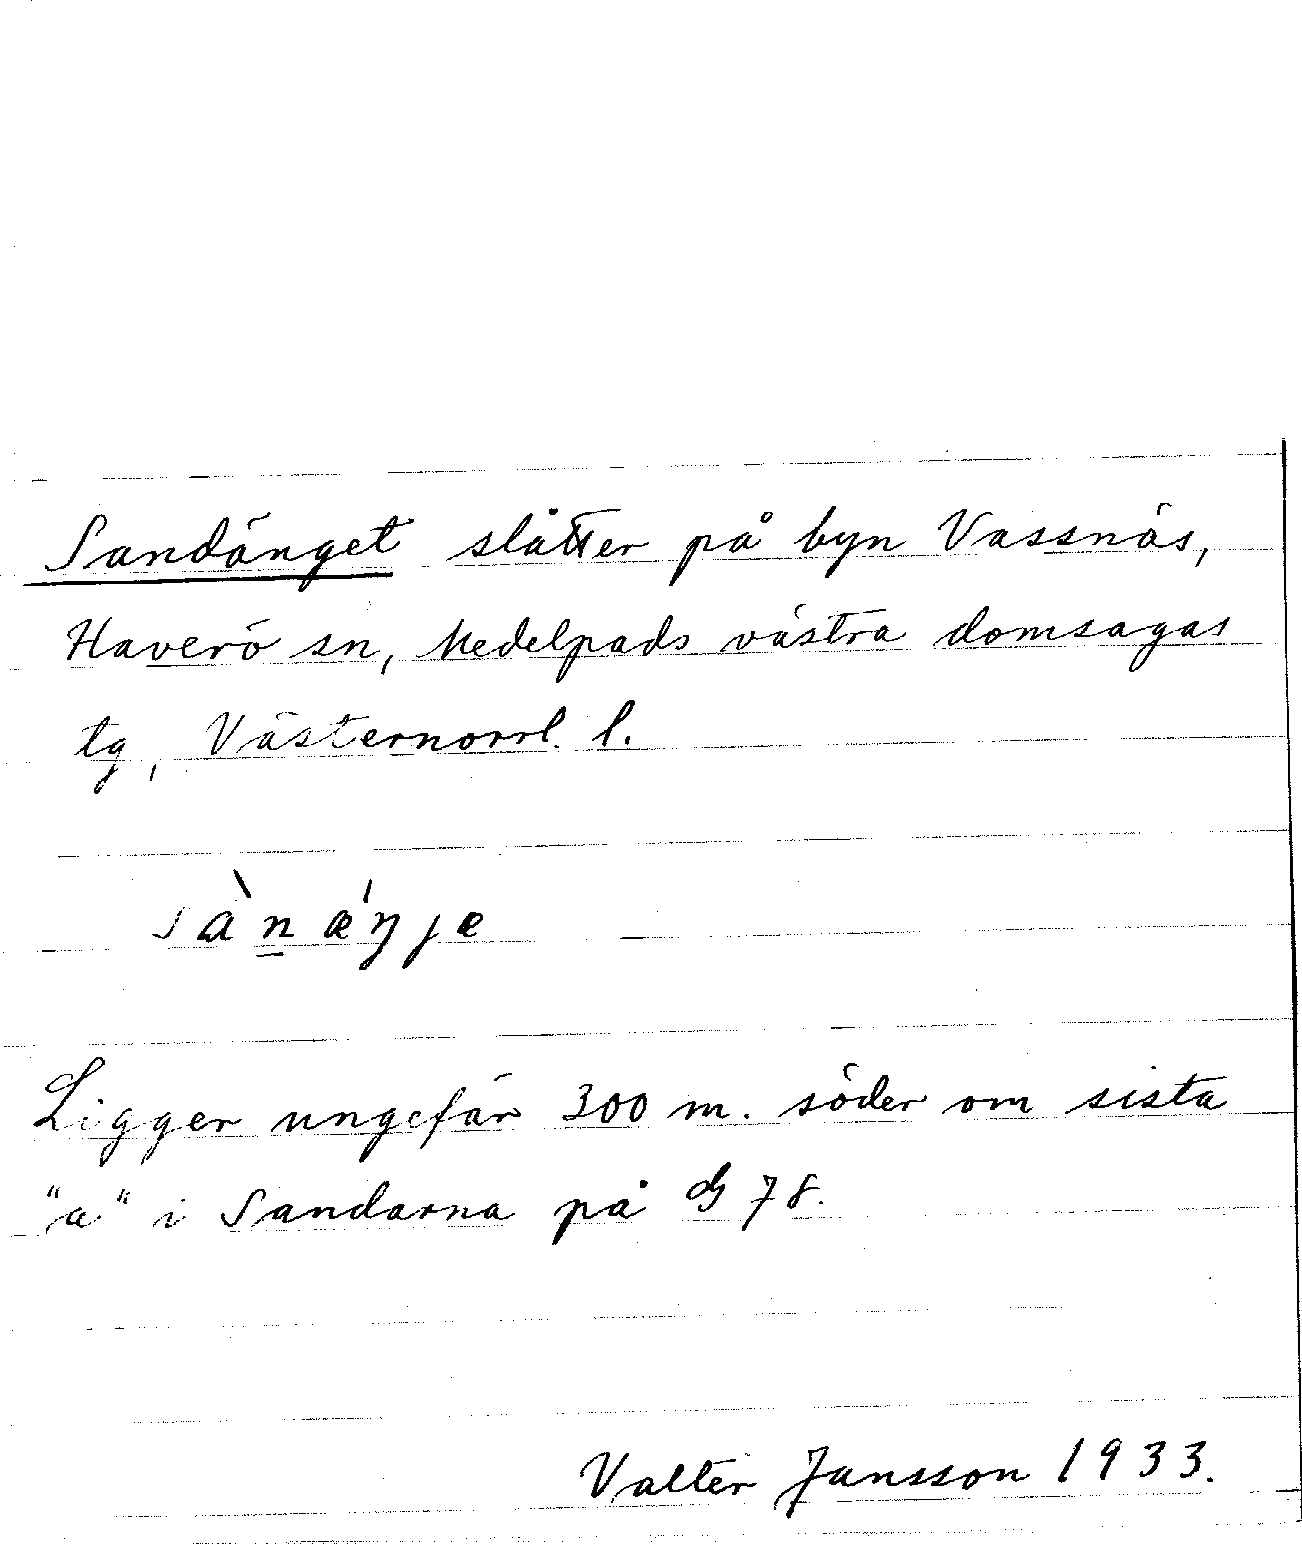 Sandänget slåtter på byn Vassnäs,
Haverö sn, Medelpads västra domsagas
tg, Västernorrl. l.
sàn̲ǽŋje
Ligger ungefär 300 m. söder om sista
"a" i Sandarna på G 78.
Valter Jansson 1933.